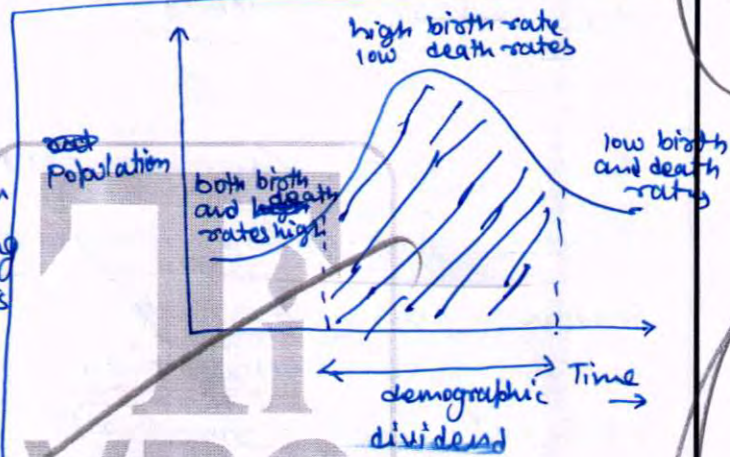 high birth rate
low death rates
Population
both birth
and death
rates high
low birth
and death
rates
Time
demographic
dividend